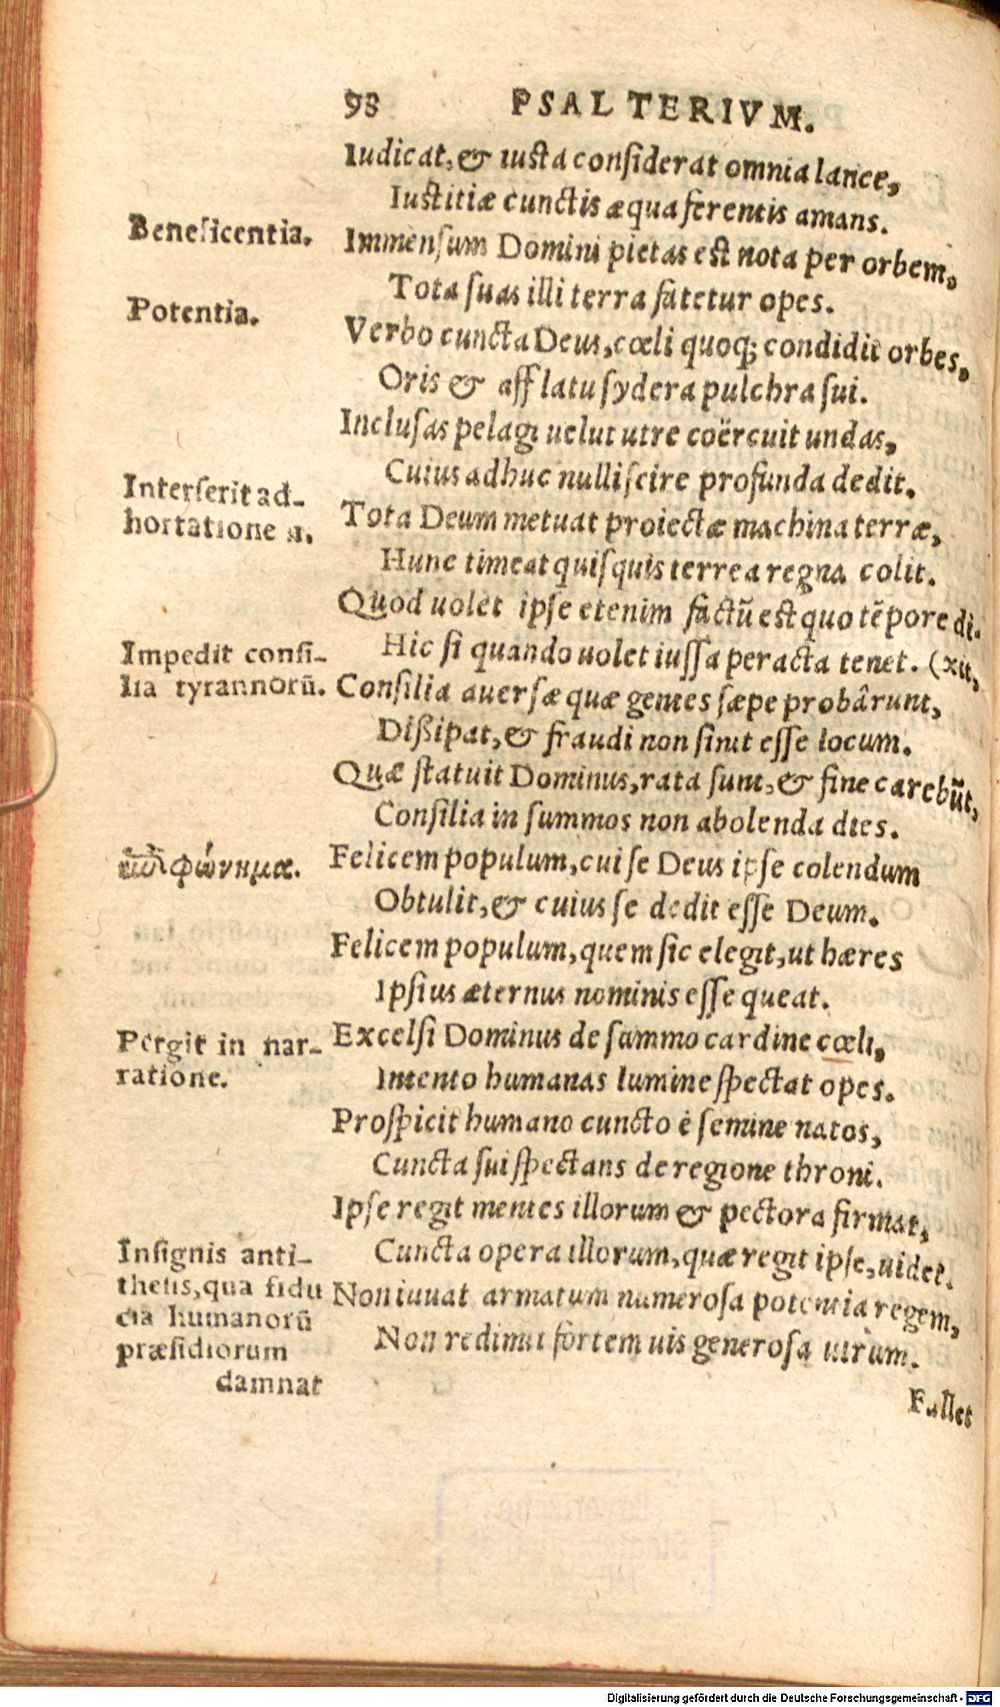 98 PSALTERIVM.
Iudicat, & iusta considerat omnia lance,
Iustitiæ cunctis æqua ferentis amans.
Beneficentia.
Immensum Domini pietas est nota per orbem,
Tota suas illi terra fatetur opes.
Potentia.
Verbo cuncta Deus, cœli quoq; condidit orbes,
Oris & afflatu sydera pulchra sui.
Inclusas pelagi uelut utre coërcuit undas,
Cuius adhuc nulli scire profunda dedit.
Interserit ad-
hortatione
Tota Deum metuat proiectæ machina terræ,
Hunc timeat quisquis terrea regna colit.
Quod uolet ipse etenim factū est quo tēpore di-
Hic si quando uolet iussa peracta tenet. (xit,
Impedit consi-
lia tyrannorū.
Consilia auersæ quæ gentes sæpe probârunt,
Dißipat, & fraudi non sinit esse locum.
Quæ statuit Dominus, rata sunt, & fine carebūt,
Consilia in summos non abolenda dies.
Felicem populum, cui se Deus ipse colendum
Obtulit, & cuius se dedit esse Deum.
Felicem populum, quem sic elegit, ut hæres
Ipsius æternus nominis esse queat.
Pergit in nar-
ratione.
Excelsi Dominus de summo cardine cœli,
Intento humanas lumine spectat opes.
Prospicit humano cuncto è semine natos,
Cuncta sui spectans de regione throni.
Ipse regit mentes illorum & pectora firmat,
Cuncta opera illorum, quæ regit ipse, uidet.
Insignis anti-
thesis, qua fidu
cia humanorū
præsidiorum
damnat
Non iuuat armatum numerosa potentia regem,
Non redimit fortem uis generosa uirum.
Fallet
Digitalisierung gefördert durch die Deutsche Forschungsgemeinschaft - DFG